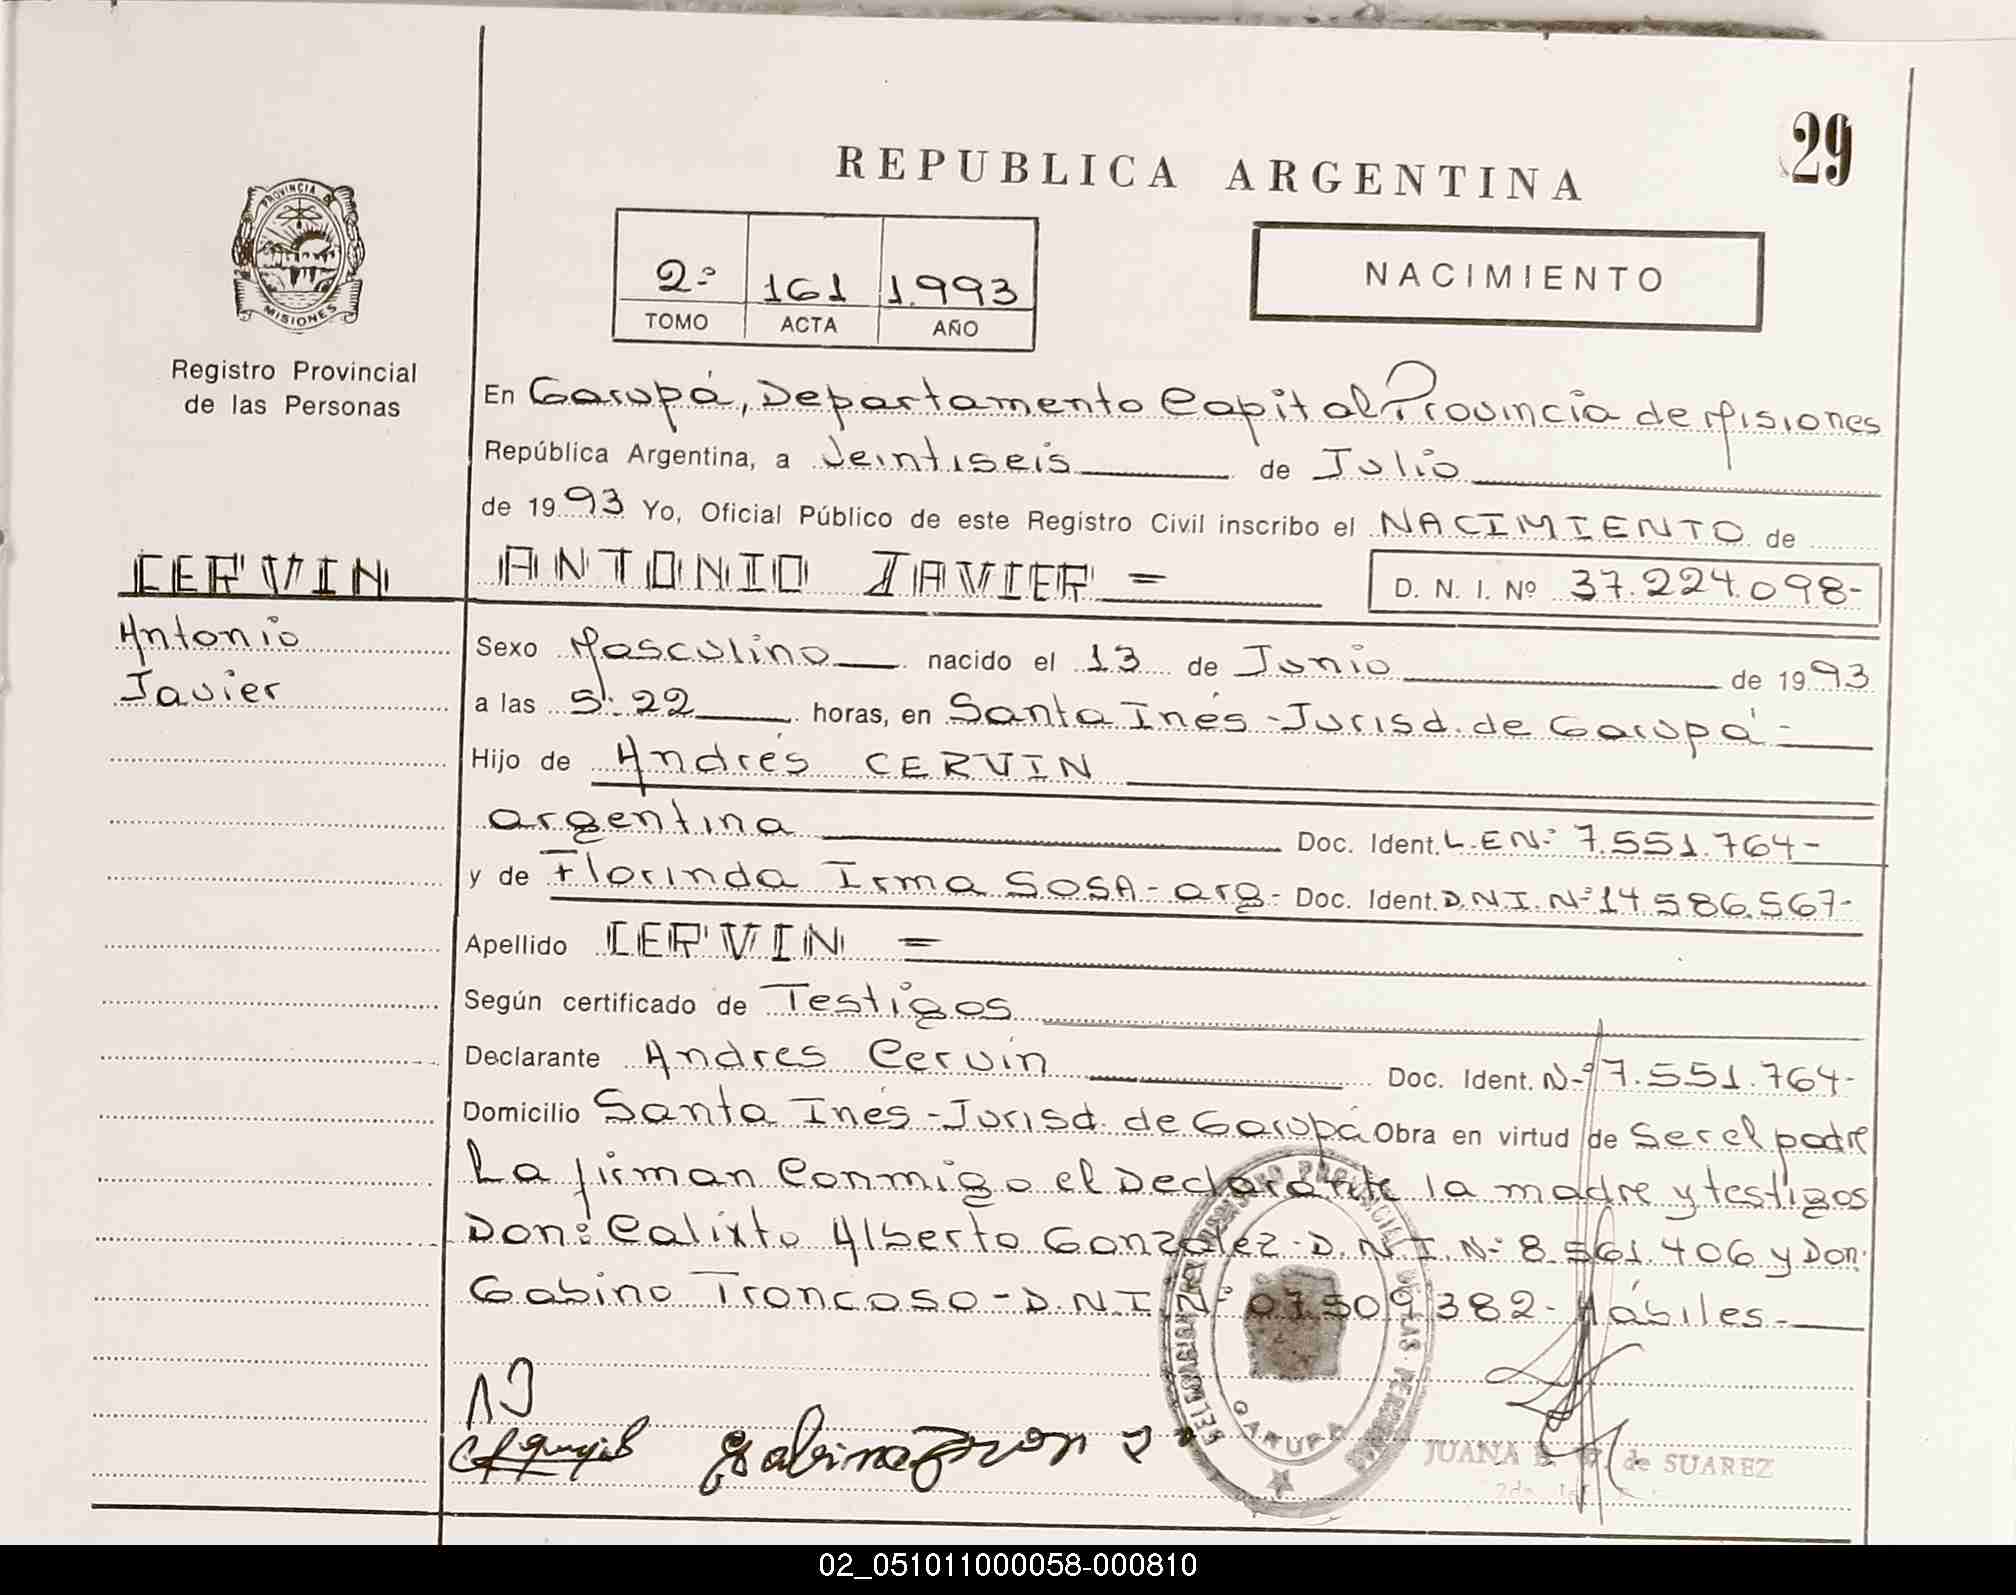 29
REPUBLICA ARGENTINA
PROVINCIA DE
MISIONES
Registro Provincial
de las Personas
2º 161 1.993
TOMO ACTA AÑO
NACIMIENTO
En Garupá, Departamento Capital Provincia de Misiones
República Argentina, a Veintiseis de Julio
de 1993 Yo, Oficial Público de este Registro Civil inscribo el NACIMIENTO de
CERVIN
Antonio
Javier
ANTONIO JAVIER = D. N. I. Nº 37.224.098-
Sexo Masculino nacido el 13 de Junio de 1993
a las 5:22 horas, en Santa Inés - Jurisd. de Garupá -
Hijo de Andrés CERVIN
argentina Doc. Ident. L.E Nº 7.551.764-
y de Florinda Irma SOSA - arg - Doc. Ident. D.N.I. Nº 14.586.567-
Apellido CERVIN =
Según certificado de Testigos
Declarante Andres Cervin Doc. Ident. Nº 7.551.764-
Domicilio Santa Inés - Jurisd. de Garupá Obra en virtud de Ser el padre
La firman Conmigo el Declarante la madre y testigos
Don: Calixto Alberto Gonzalez - D.N.I. Nº 8.561.406 y Don:
Gabino Troncoso - D.N.I. Nº 07.509.382 - Hábiles -
GARUPA
JUANA de SUAREZ
02_051011000058-000810